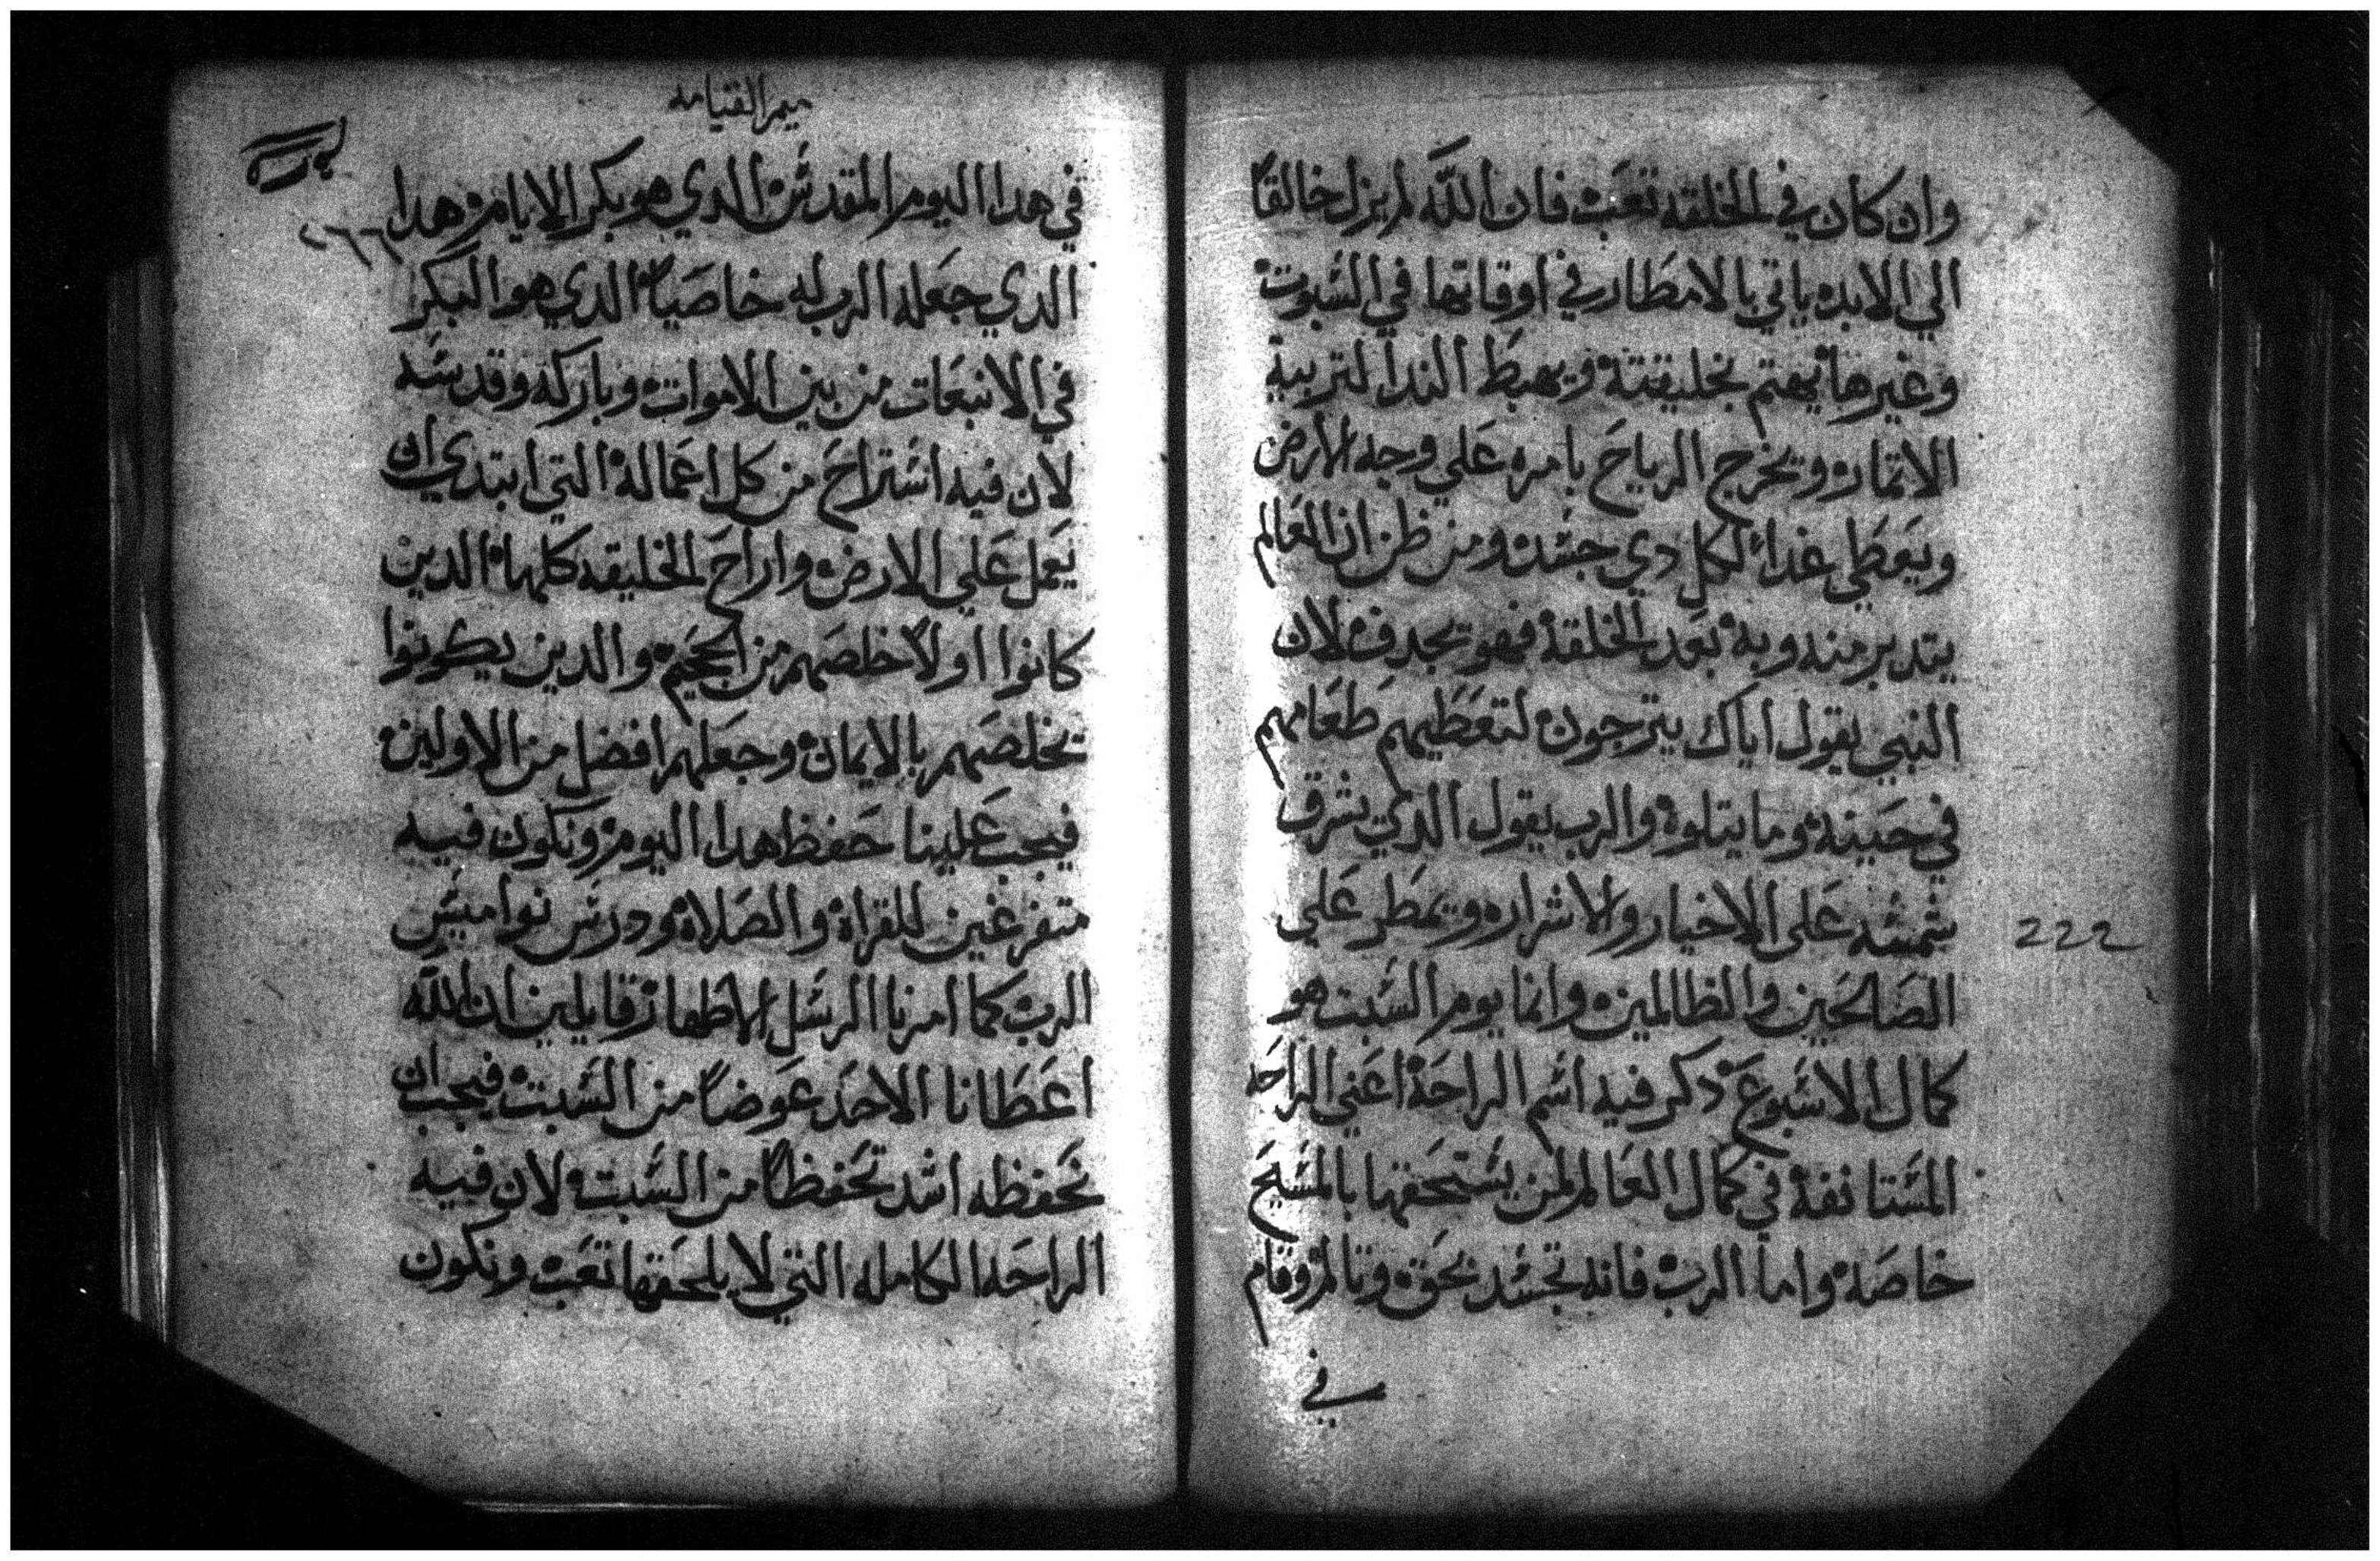 وان كان في الخلقه تعب فان الله لم يزل خالقا
الي الابد ياتي بالامطار في اوقاتها في السبوت
وغيرها يهتم بخليقتة ويهبط الندا لتربية
الاتمار ويخرج الرياح بامره علي وجه الارض
ويعطي غداً لكل دي جسد ومن ظن ان العالم
يتدبر منه وبه بعد الخلقة فهو يجدف لان
النبي يقول اياك يترجون لتعطيهم طعامهم
في حينه وما يتلوه والرب يقول الدي يشرق
شمسه علي الاخيار والاشرار ويمطر علي
الصالحين والظالمين وانما يوم السبت هو
كمال الاسبوع دكر فيه اسم الراحة اعني الراحه
المستانفة في كمال العالم لمن يستحقها بالمسيح
خاصة واما الرب فانه تجسد بحق وتالم وقام
في
222
ميمر القيامه
٢٦٦
في هدا اليوم المقدس الدي هو بكر الايام هدا
الدي جعله الرب له خاصياً الدي هو البكر
في الانبعات من بين الاموات وباركه وقدسه
لان فيه استراح من كل اعماله التي ابتدي ان
يعمل علي الارض واراح الخليقه كلها الدين
كانوا اولاً خلصهم من الجحيم والدين يكونوا
تخلصهم بالايمان وجعلهم افضل من الاولين
فيجب علينا حفظ هدا اليوم ونكون فيه
متفرغين للقراة والصلاة ودرس نواميس
الرب كما امرنا الرسل الاطهار قايلين ان الله
اعطانا الاحد عوضاً من السبت فيجب ان
نحفظه اشد تحفظاً من السبت لان فيه
الراحه الكامله التي لا يلحقها تعب ونكون